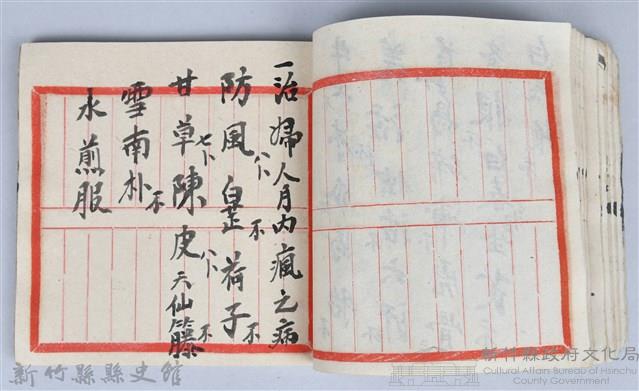 一治婦人月内瘋之病
防風 白芷不 荷子不
甘草 陳皮 天仙籐不
雪南朴不
水煎服
新竹縣縣史館
新竹縣政府文化局
Cultural Affairs Bureau of Hsinchu
County Government